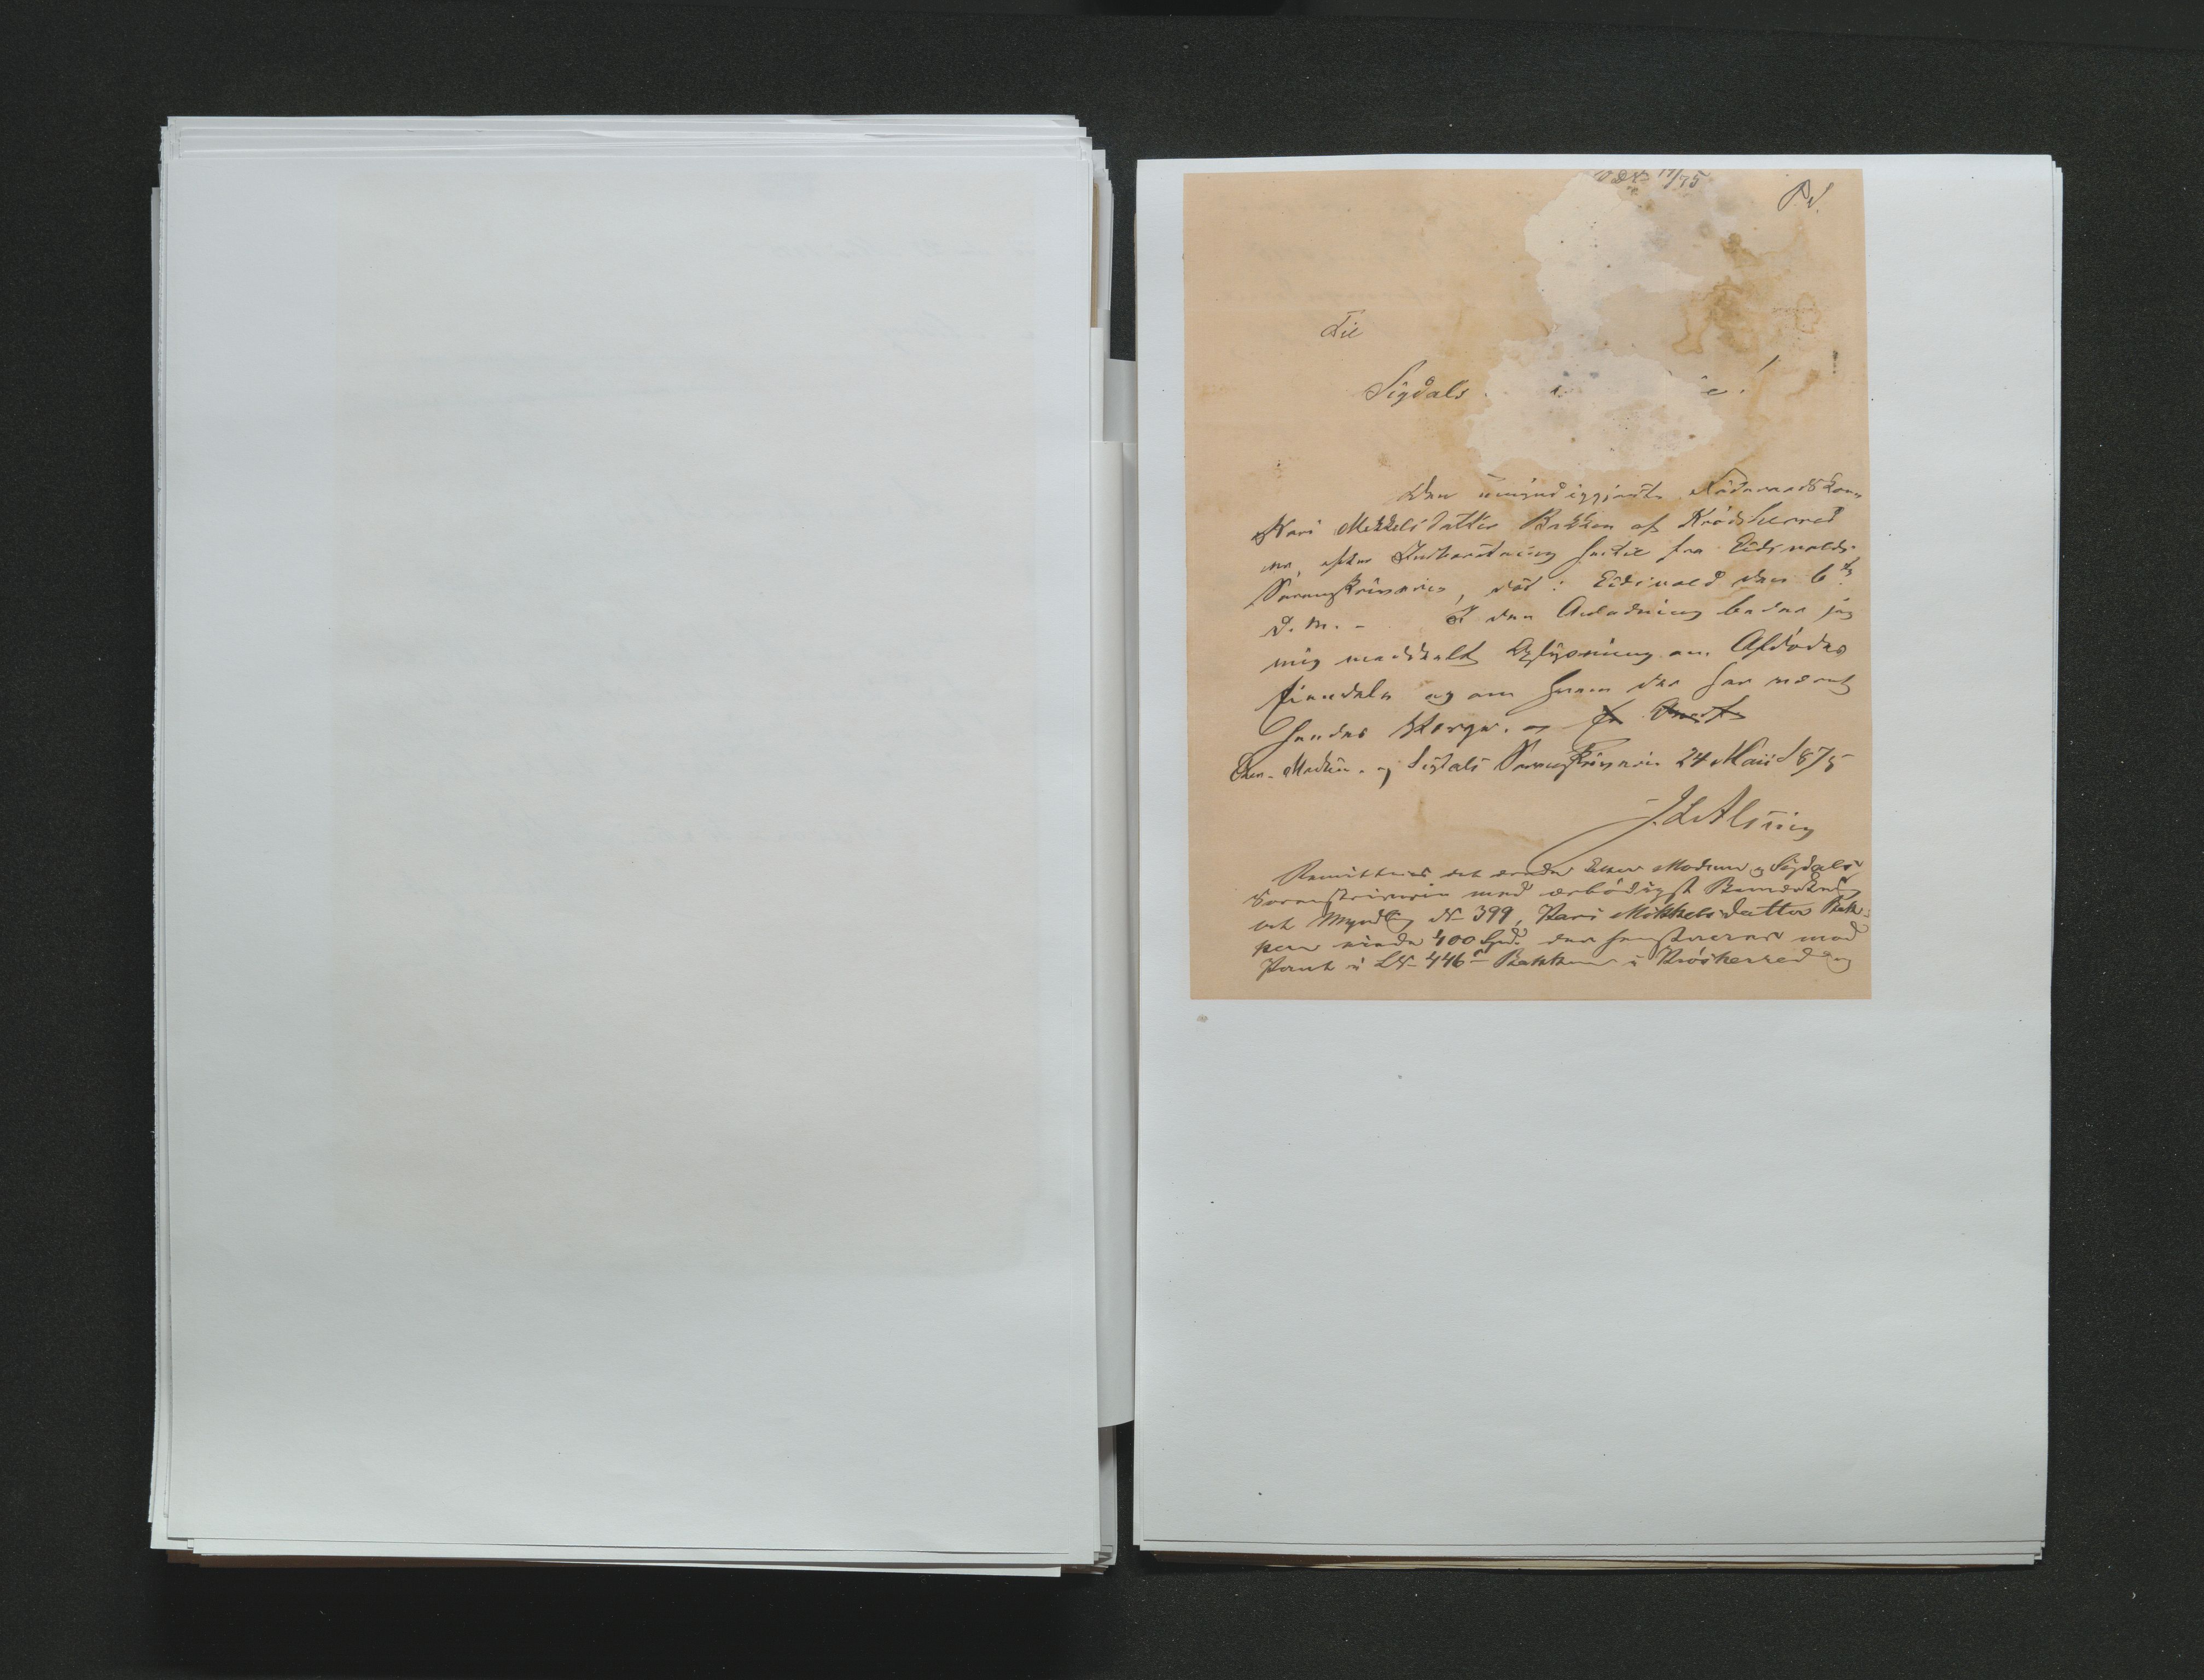 17/75
Til
Sigdals
Den umyndiggjorte Føderaadskone
Kari Mekkelsdatter Bakken af Krødsherred
er, efter Indberetning hertil fra Eidsvolds
Sorenskriveri, død i Eidsvold den 6te
d. M. - I den Anledning beder jeg
mig meddelt Oplysning om Afdødes
Eiendele og om hvem der har været
hendes Værge.
Eker, Modum og Sigdals Sorenskriveri 24 Mai 1875
Remitteres det ærede Eker Modum og Sigdals
Sorenskriveri med ærbødigst Bemærkning
at Myndling No 399, Kari Mikkelsdatter Bak-
ken eiede 400 Spd. der henstaar mod
Pant i LN 446 Bakken i Krødsherred og